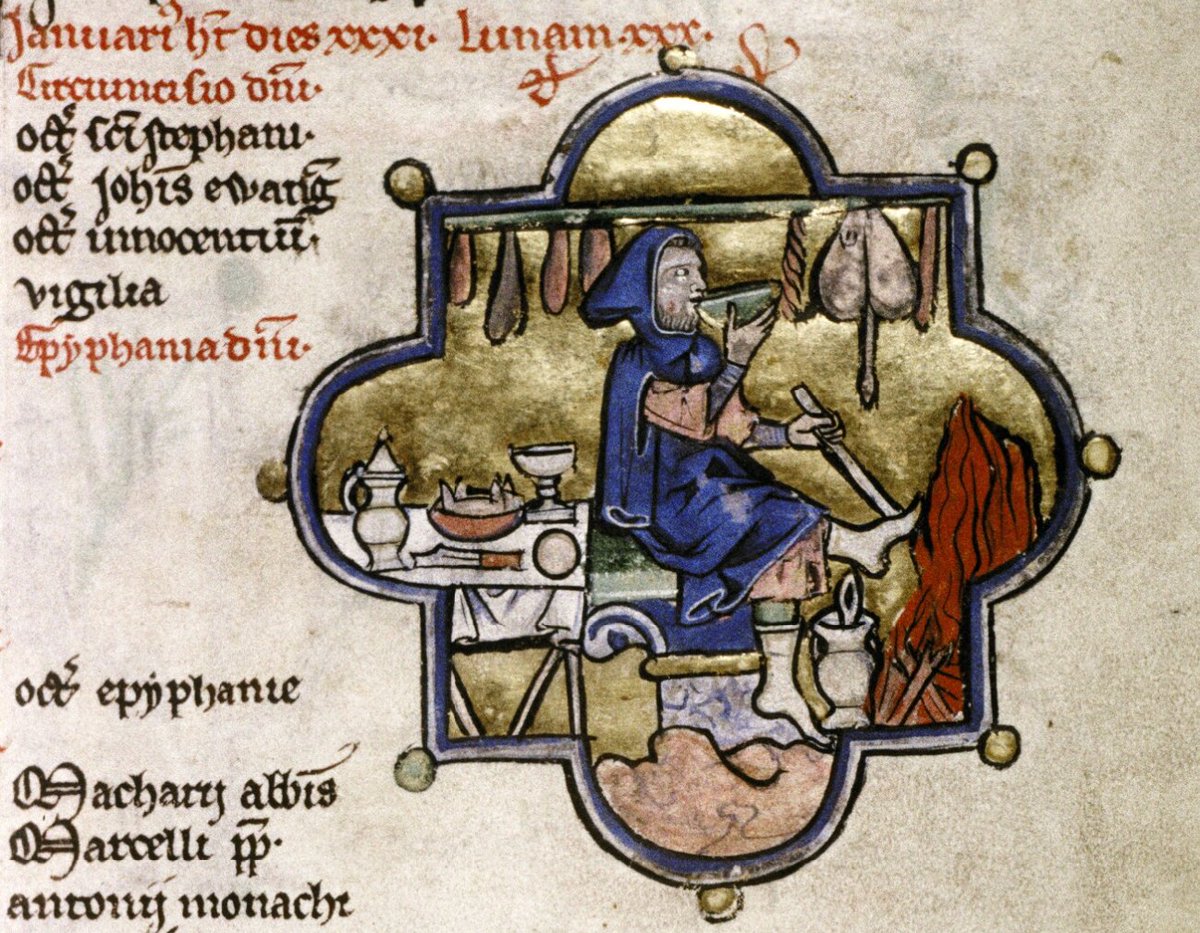 Januari᾽ h̄t dies xxxi. Lunam .xxx.
Circumcisio dn̄i.
oct᾽ sc̄i stephani.
oct᾽ Joh̄is ewanḡ
oct᾽ innocentiū.
vigilia
Epyphania dn̄i.
oct᾽ epyphanie
Macharij abb̄is
Marcelli pp̄.
antonij monachi